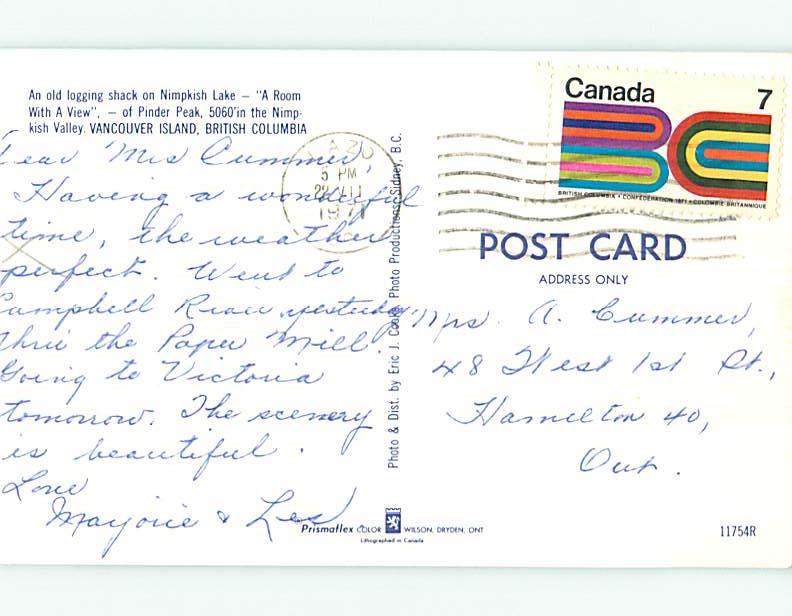 An old logging shack on Nimpkish Lake – "A Room
With A View", – of Pinder Peak, 5060' in the Nimp-
kish Valley. VANCOUVER ISLAND, BRITISH COLUMBIA
Dear Mrs Cummer,
Having a wonderful
time, the weather
perfect. Went to
Campbell River yesterday
thru the Paper Mill.
Going to Victoria
tomorrow. The scenery
is beautiful.
Love
Marjorie & Les
Photo & Dist. by Eric J. Cooke Photo Productions, Sidney, B.C.
LAZO
5 PM
22 VII
1971
Canada 7
BRITISH COLUMBIA • CONFEDERATION 1971 • COLOMBIE BRITANNIQUE
POST CARD
ADDRESS ONLY
Mrs. A. Cummer,
48 West 1st St.,
Hamilton 40,
Ont.
Prismaflex COLOR WILSON, DRYDEN, ONT
Lithographed in Canada
11754R